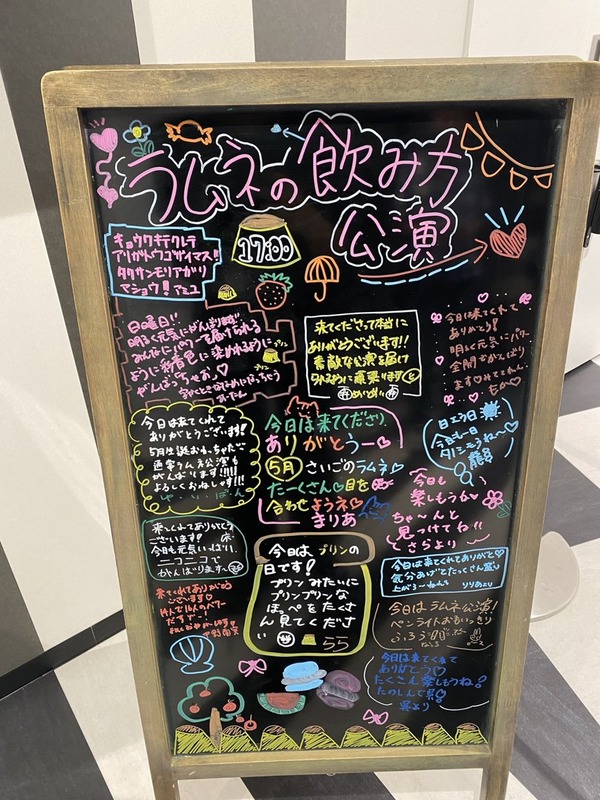 ラムネの飲み方
公演
17:00
キョウワキテクレテ
アリがんウゴザイマス!!
タクサンモリアガリ
マショウ!アミユ
日曜日!!
明るく元気に
がんばっちゃお♡
来てくださって本当に
ありがとうございます!!
素敵な公演を届け
られるように頑張ります
めいめい
今日は来てくれて
ありがとう!
明るく元気にパワー
全開でがんばり
ます♡みててね
もか♡
今日は来てくれて
ありがとうございます!
5月生誕おわっちゃだ
通常ラムネ公演も
がんばります!!!!
よろしくおねしゃす!!!
ゆいぽん
今日は来てくださり
ありがとうー♡
5月さいごのラムネ♡
たーくさん♡目を
合わせようネ♡
まりあ
日エヨ日
今日も一日
今日も
楽しもうね♡
ちゃ〜んと
見つけてね!!
さらより
来てくれてありがとう
ございます!
今日も元気いっぱい
ニコニコで
がんばります
今日はプリンの
日です!
プリンみたいに
プリンプリンな
ほっぺをたくさ
ん見てくださ
い
ララ
今日は来てくれてありがと♡
気分あげてたっくさん盛り
上がろ〜ねっ♪
りりあより
来てくれてありがとう
ございます♡
14人で16人のパワー
だすぞー!
今日はラムネ公演!
ペンライトおもいっきり
ふろう!
今日は来てくれて
ありがとう♡
たくさん楽しもうね!
たのしんでね!